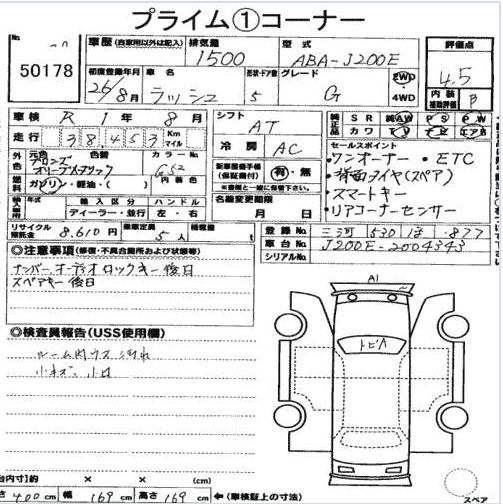 プライム①コーナー
No. 50178
車歴 (自家用以外は記入)
排気量 1500
型式 ABA-J200E
評価点 4.5
初度登録年月 26/8月
車名 ラッシュ
形状・ドア数 5
グレード G
2WD
4WD
内装補助評価 B
車検 R1年8月
走行 38,453 Km マイル
シフト AT
冷房 AC
純正品 SR AW PS PW
カワ TV ナビ エアB
セールスポイント
・ワンオーナー ・ETC
・背面タイヤ(スペア)
・スマートキー
・リアコーナーセンサー
外装色 元色 ブロンズオリーブメタリック 色替
カラーNo. G52
内装色
燃料 ガソリン・軽油・( )
新車整備手帳(保証書付) 有・無
※書類と一緒に保管下さい
輸入区分 ディーラー・並行
ハンドル 左・右
名義変更期限 月 日
リサイクル預託金 8,610円
乗車定員 5人
積載量
登録No. 三河 530 ・877
車台No. J200E-2004343
シリアルNo.
◎注意事項(修復・不具合箇所および状態等)
ナンバー、オーディオ ロックキー後日
スペアキー後日
◎検査員報告(USS使用欄)
ルーム内ウス汚れ
小キズ、小凹
A1
トビA
台内寸)約 × × (cm)
さ 400cm 幅 169cm 高さ 169cm ←(車検証上の寸法)
スペア